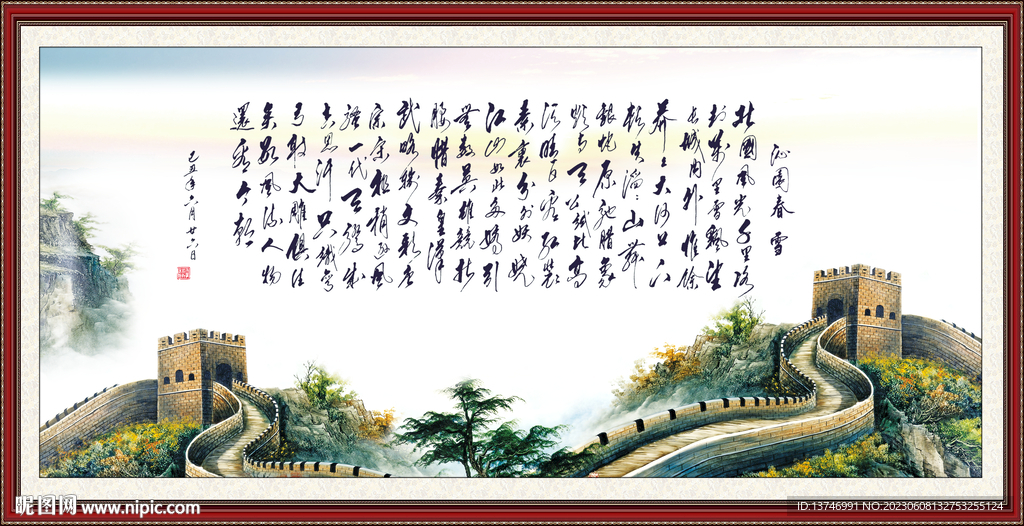 沁園春 雪
北國風光千里冰
封萬里雪飄望
長城内外惟餘
莽々大河上下
頓失滔々山舞
銀蛇原馳腊象
欲与天公試比高
須晴日看紅裝
素裹分外妖嬈
江山如此多嬌引
無數英雄競折
腰惜秦皇漢
武略輸文彩唐
宗宋祖稍遜風
騷一代天驕成
吉思汗只識彎
弓射大雕俱往
矣數風流人物
還看今朝
己丑年六月廿六日
昵图网 www.nipic.com
ID:13746991 NO:20230608132753255124